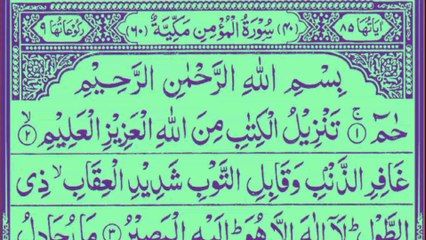 اٰیَاتُهَا ٨٥ (٤٠) سُوْرَةُ الْمُؤْمِنِ مَکِّیَّةٌ (٦٠) رُکُوْعَاتُهَا ٩
بِسْمِ اللّٰهِ الرَّحْمٰنِ الرَّحِیْمِ
حٰمٓ ۚ ۱ تَنْزِیْلُ الْکِتٰبِ مِنَ اللّٰهِ الْعَزِیْزِ الْعَلِیْمِ ۙ ۲
غَافِرِ الذَّنْۢبِ وَقَابِلِ التَّوْبِ شَدِیْدِ الْعِقَابِ ۙ ذِی
الطَّوْلِ ؕ لَاۤ اِلٰهَ اِلَّا هُوَ ؕ اِلَیْهِ الْمَصِیْرُ ۳ مَا یُجَادِلُ